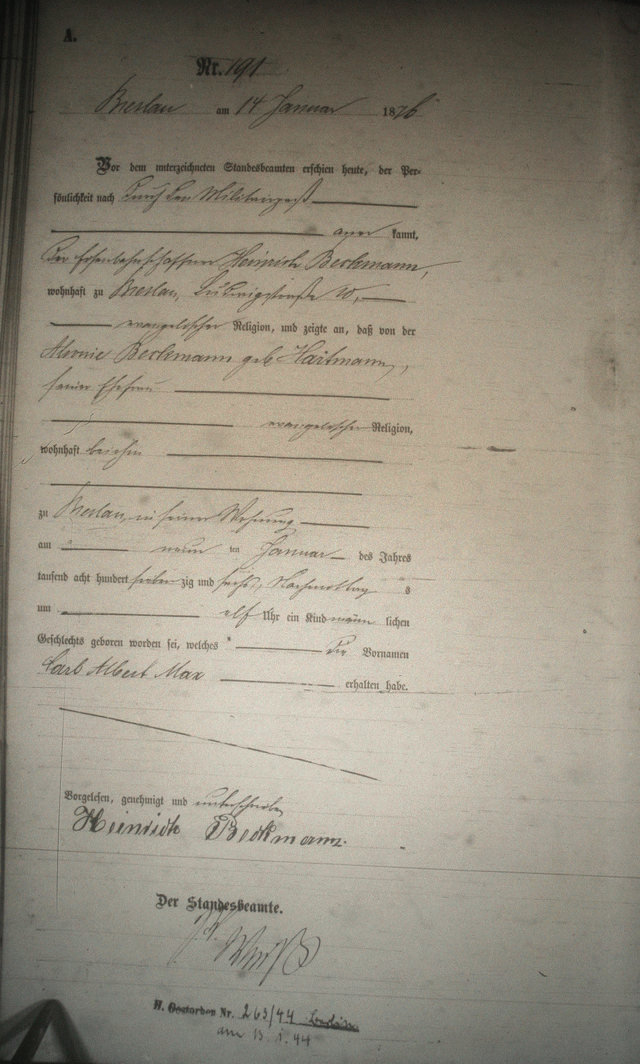 A.
Nr. 191
Breslau am 14 Januar 1876
Vor dem unterzeichneten Standesbeamten erschien heute, der Per-
sönlichkeit nach durch den Militairpaß
aner kannt,
der Eisenbahnschaffner Heinrich Beckmann,
wohnhaft zu Breslau, 10,
evangelischer Religion, und zeigte an, daß von der
Beckmann geb Hartmann,
seiner Ehefrau
evangelischer Religion,
wohnhaft bei ihm
zu Breslau, in seiner Wohnung
am neun ten Januar des Jahres
tausend acht hundert sieben zig und sechs, Nachmittag s
um elf Uhr ein Kind männ lichen
Geschlechts geboren worden sei, welches die Vornamen
Carl Albert Max
erhalten habe.
Vorgelesen, genehmigt und unterschrieben
Heinrich Beckmann.
Der Standesbeamte.
H. Gestorben Nr. 263/44
am 13.1.44